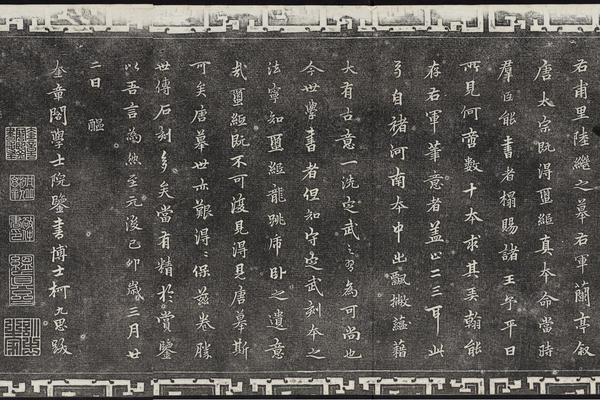 右甫里陸繼之摹右軍蘭亭叙
唐太宗既得繭紙真本命當時
群臣能書者搨賜諸王予平日
所見何啻數十本求其弄翰能
存右軍筆意者蓋止二三耳此
弓自褚河南本中出飄撇蘊藉
大有古意一洗定武之習為可尚也
今世學書者但知守定武刻本之
法寧知繭紙龍跳虎卧之遺意
哉繭紙既不可復見得見唐摹斯
可矣唐摹世亦艱得〻保茲卷勝
世傳石刻多矣當有精於賞鑒
以吾言為然至元後己卯歲三月廿
二日
奎章閣學士院鑒書博士柯九思跋